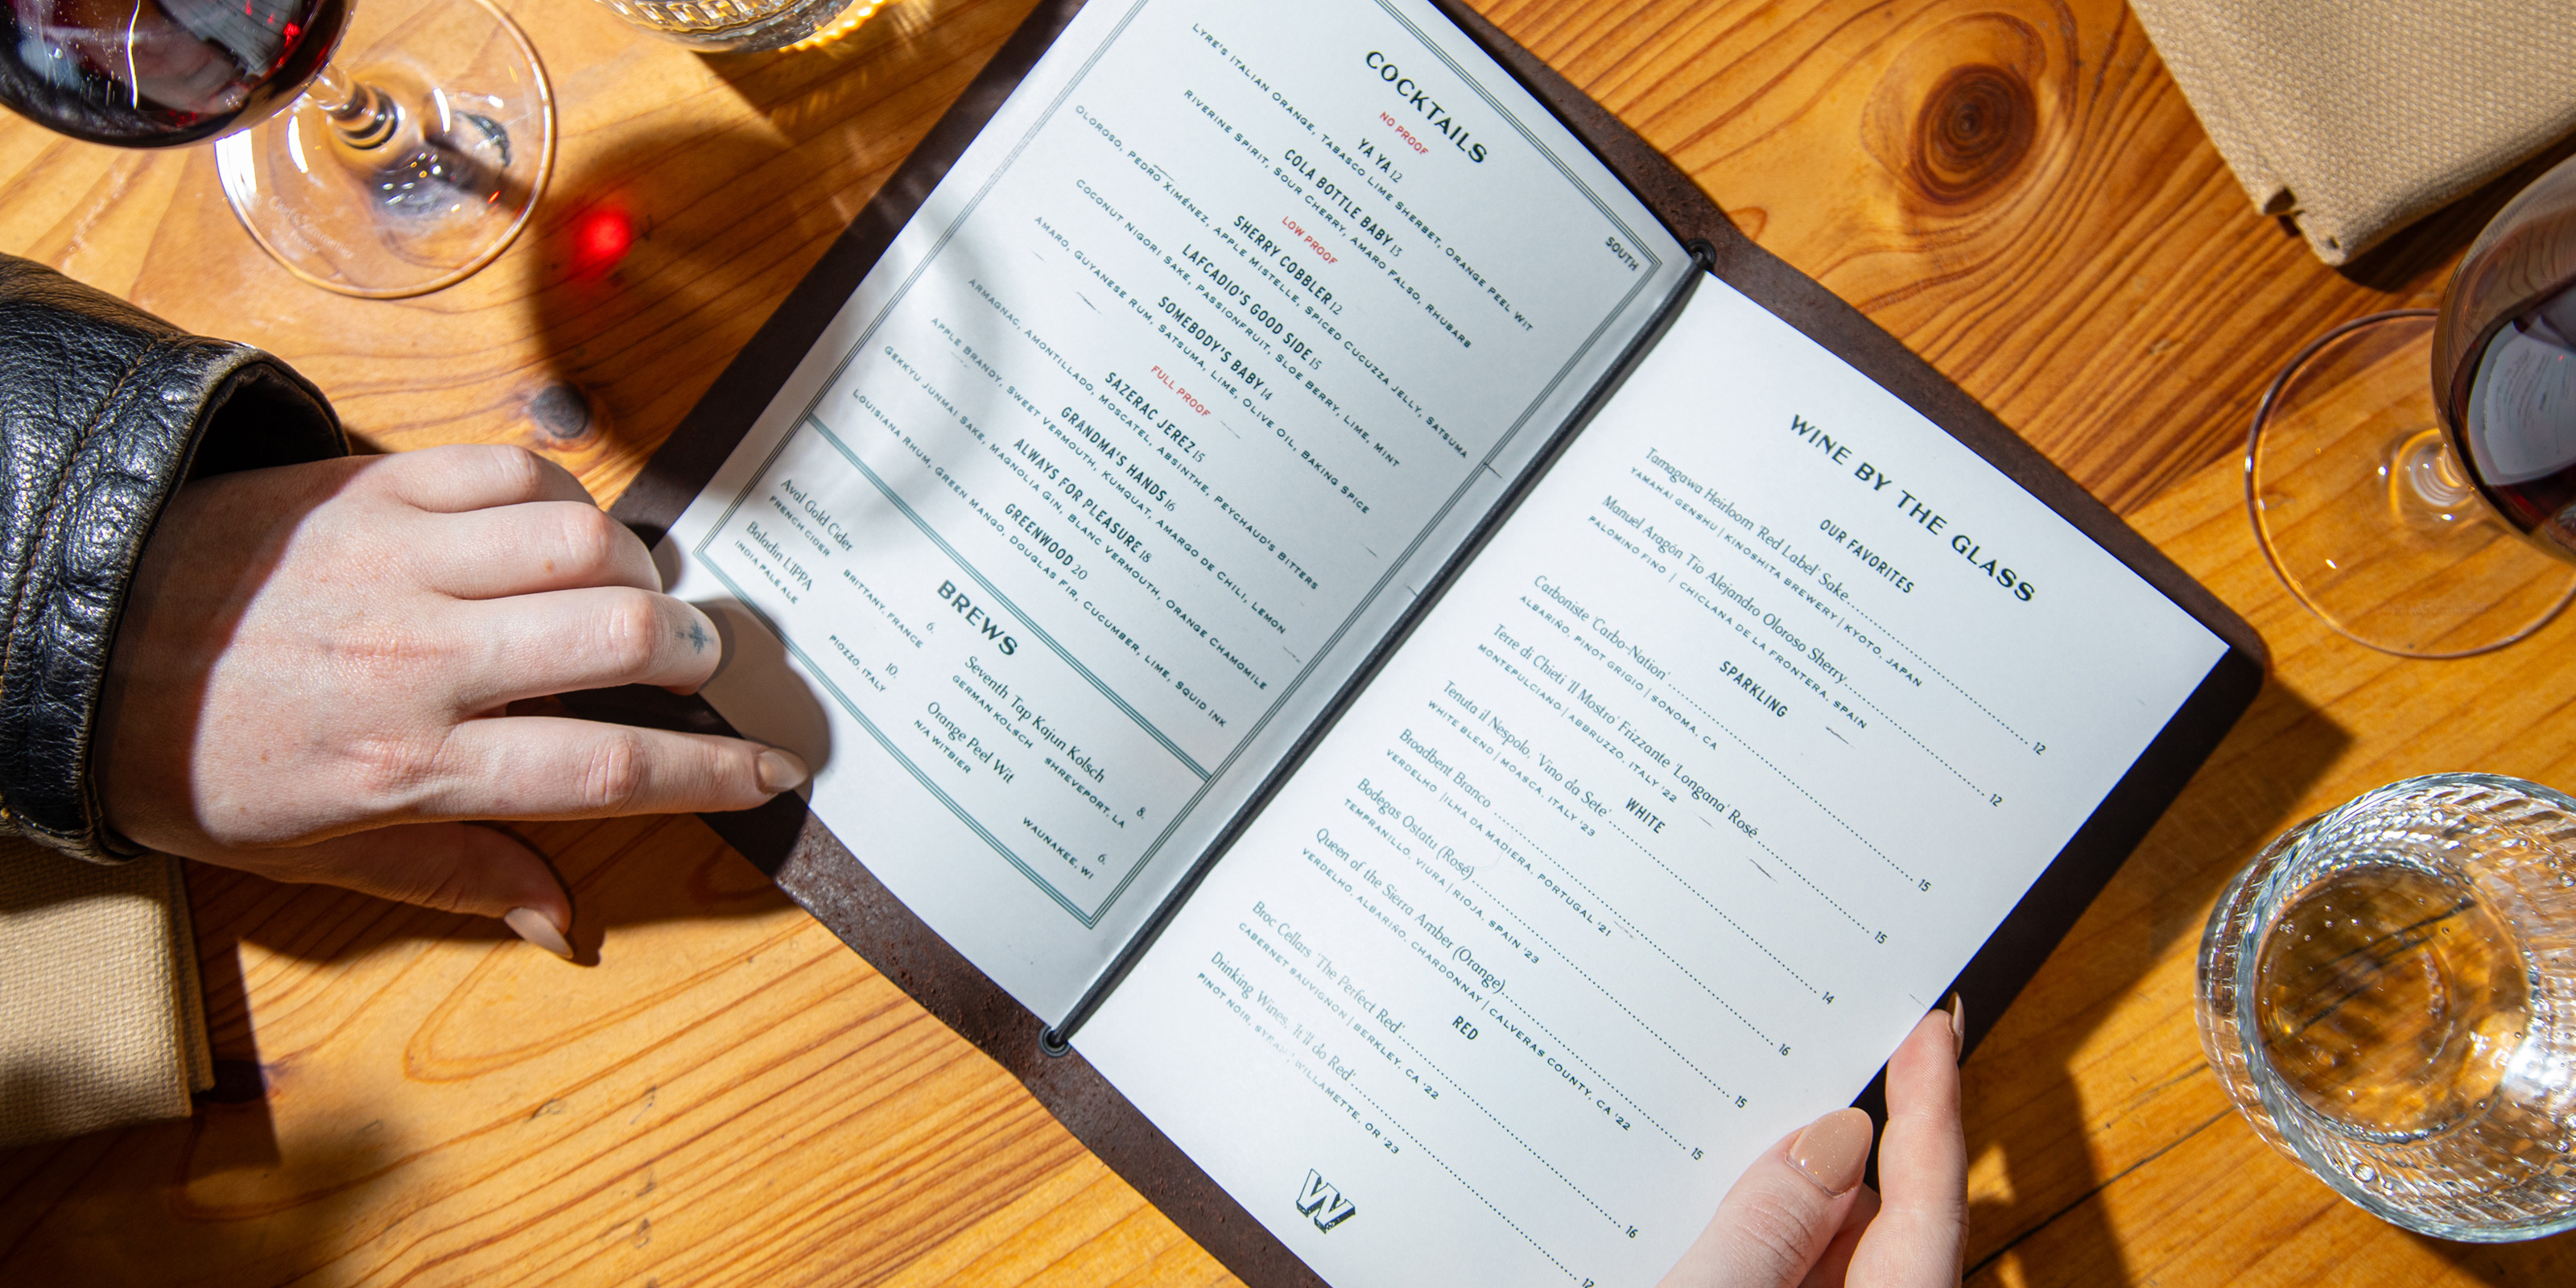 COCKTAILS
NO PROOF
YA YA 12
LYRE'S ITALIAN ORANGE, TABASCO LIME SHERBET, ORANGE PEEL WIT
COLA BOTTLE BABY 13
RIVERINE SPIRIT, SOUR CHERRY, AMARO FALSO, RHUBARB
LOW PROOF
SHERRY COBBLER 12
OLOROSO, PEDRO XIMÉNEZ, APPLE MISTELLE, SPICED CUCUZZA JELLY, SATSUMA
LAFCADIO'S GOOD SIDE 15
COCONUT NIGORI SAKE, PASSIONFRUIT, SLOE BERRY, LIME, MINT
SOMEBODY'S BABY 14
AMARO, GUYANESE RUM, SATSUMA, LIME, OLIVE OIL, BAKING SPICE
FULL PROOF
SAZERAC JEREZ 15
ARMAGNAC, AMONTILLADO, MOSCATEL, ABSINTHE, PEYCHAUD'S BITTERS
GRANDMA'S HANDS 16
APPLE BRANDY, SWEET VERMOUTH, KUMQUAT, AMARGO DE CHILI, LEMON
ALWAYS FOR PLEASURE 18
GEKKYU JUNMAI SAKE, MAGNOLIA GIN, BLANC VERMOUTH, ORANGE CHAMOMILE
GREENWOOD 20
LOUISIANA RHUM, GREEN MANGO, DOUGLAS FIR, CUCUMBER, LIME, SQUID INK
SOUTH
BREWS
Aval Gold Cider 6.
FRENCH CIDER BRITTANY, FRANCE
Baladin L'IPPA 10.
INDIA PALE ALE PIOZZO, ITALY
Seventh Tap Kajun Kolsch 8.
GERMAN KOLSCH SHREVEPORT, LA
Orange Peel Wit 6.
N/A WITBIER WAUNAKEE, WI
WINE BY THE GLASS
OUR FAVORITES
Tamagawa Heirloom 'Red Label' Sake 12
YAMAHAI GENSHU | KINOSHITA BREWERY | KYOTO, JAPAN
Manuel Aragón Tio Alejandro Oloroso Sherry 12
PALOMINO FINO | CHICLANA DE LA FRONTERA, SPAIN
SPARKLING
Carboniste 'Carbo-Nation' 15
ALBARIÑO, PINOT GRIGIO | SONOMA, CA
Terre di Chieti 'Il Mostro' Frizzante 'Longana' Rosé 15
MONTEPULCIANO | ABBRUZZO, ITALY '22
WHITE
Tenuta il Nespolo, 'Vino da Sete' 14
WHITE BLEND | MOASCA, ITALY '23
Broadbent Branco 16
VERDELHO | ILHA DA MADIERA, PORTUGAL '21
Bodegas Ostatu (Rosé) 15
TEMPRANILLO, VIURA | RIOJA, SPAIN '23
Queen of the Sierra Amber (Orange) 15
VERDELHO, ALBARIÑO, CHARDONNAY | CALVERAS COUNTY, CA '22
RED
Broc Cellars 'The Perfect Red' 16
CABERNET SAUVIGNON | BERKLEY, CA '22
Drinking Wines, 'It'll do Red' 12
PINOT NOIR, SYRAH | WILLAMETTE, OR '23
W